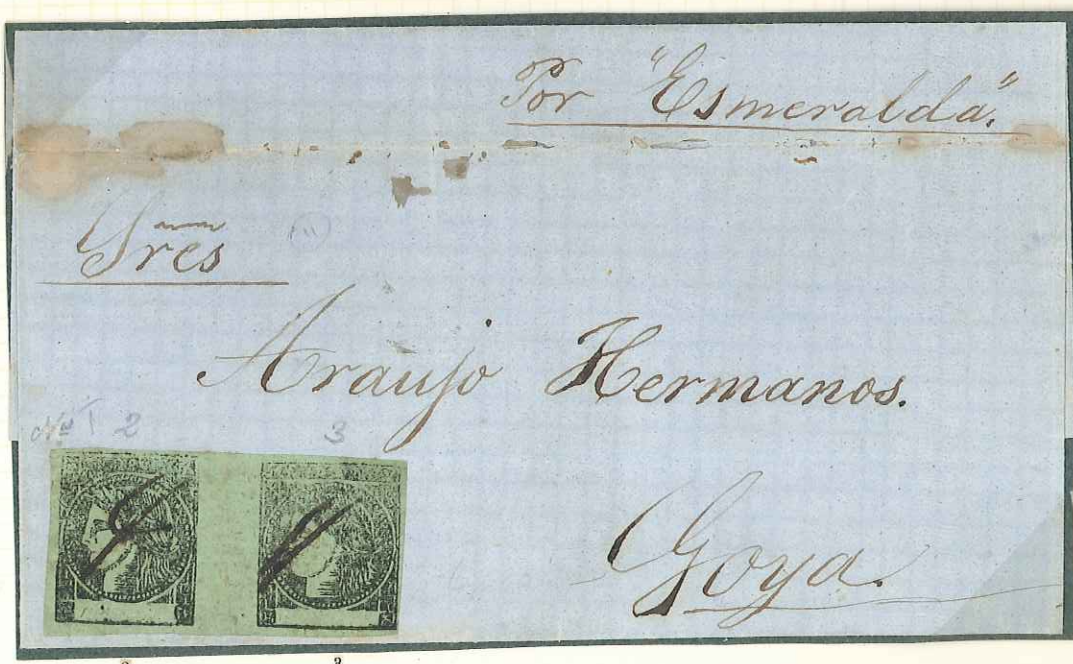 Por "Esmeralda".
Sres
(11)
Araujo Hermanos.
Nº I 2 3
Goya.
2 3